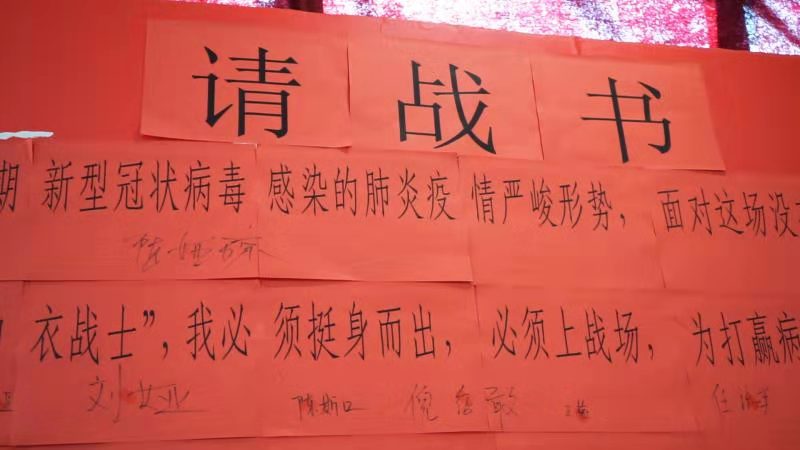 请战书
期 新型冠状病毒 感染的肺炎疫 情严峻形势， 面对这场没
衣战士”，我必 须挺身而出， 必须上战场， 为打赢病
刘亚